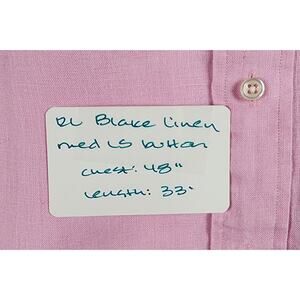 RL Blake linen
med LS button
chest: 48"
length: 33"